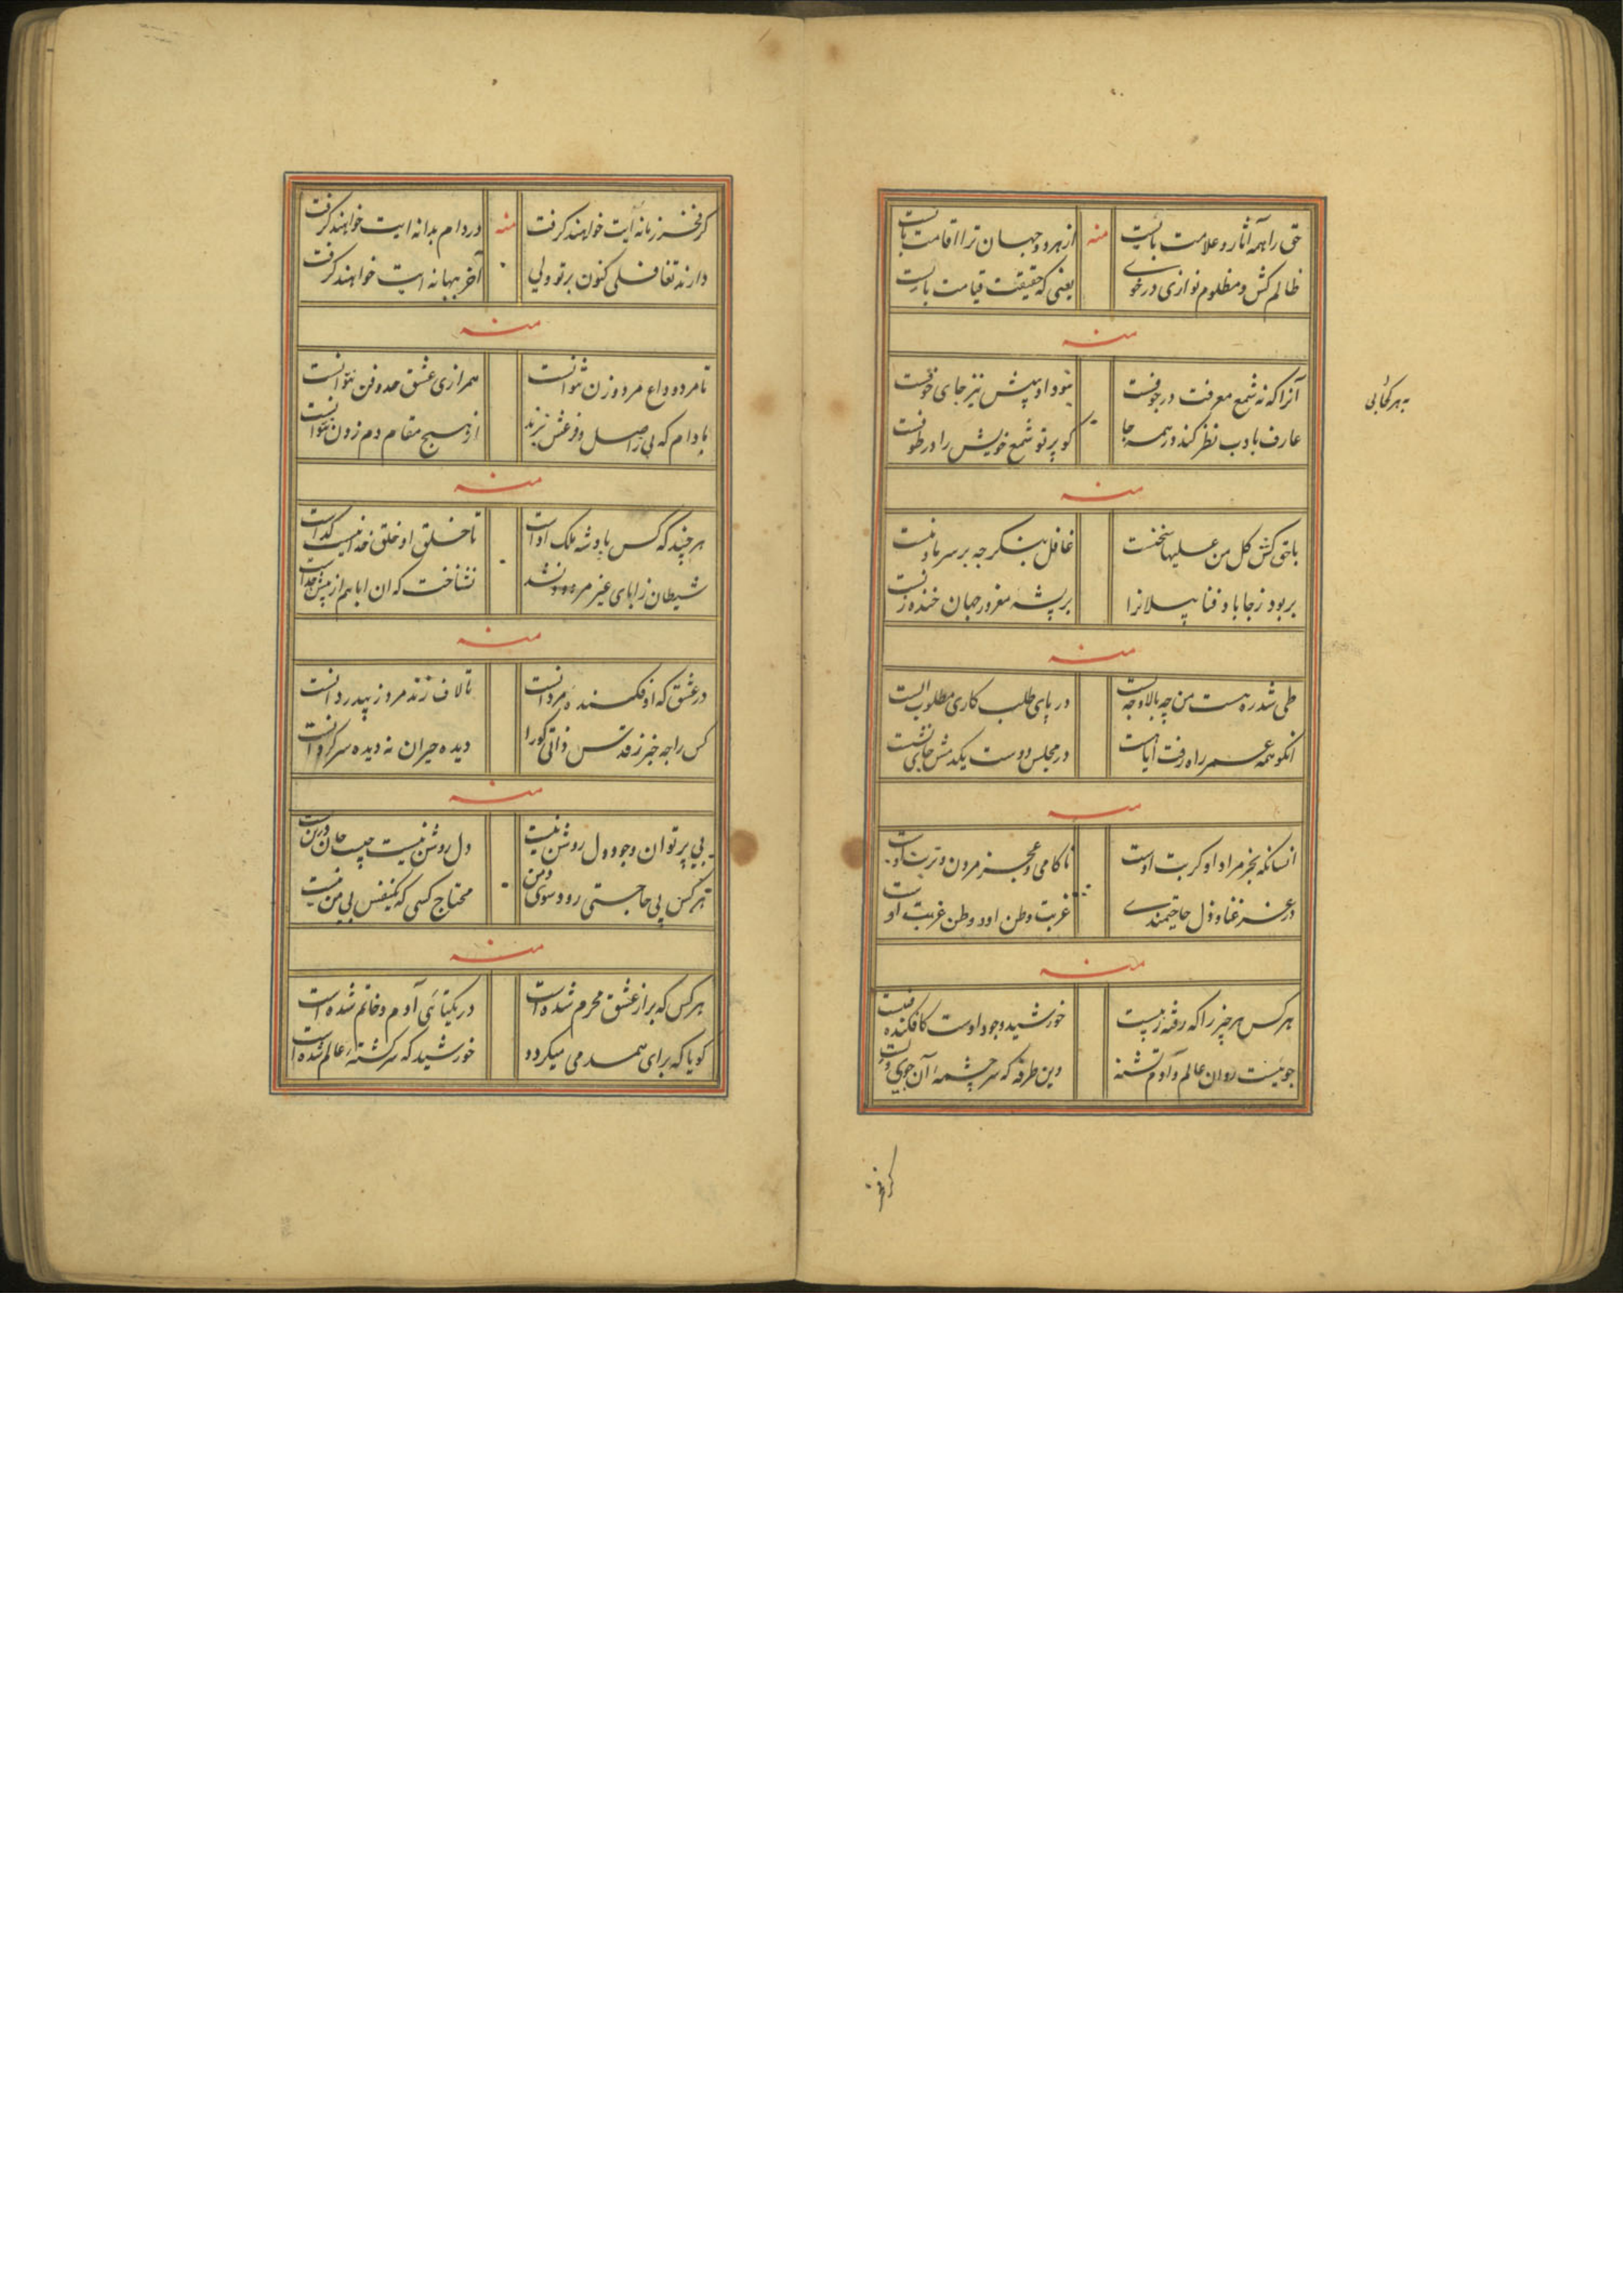 حق را همه آثار و علامت بائیست منه از هر دو جهان ترا اقامت بائیست
ظالم کش و مظلوم نوازی در خوی یعنی که حقیقت قیامت بایست
منه
آنرا که نه شمع معرفت در جوفست نبود او پیش نیز جای خوفست
به هر کجایی
عارف بادب نظر کند در همه جا کو پرتو شمع خویش را در طوفست
منه
با حق کش کل من علیها سخنست غافل بنگر چه بر سر ما و منست
بربود ز جا باد فنا پیلانرا بر پشه مغرور جهان خنده زنست
منه
طی شد ره هست من چه بالا و چه پست در پای طلب کاری مطلوب الست
انکو همه عمر راه رفت ایا هست در مجلس دوست یکدمش جای نشست
منه
انسانکه بجز مراد او کربت اوست ناکامی و عجز مردن و تربت اوست
در عز غنا و ذل حاجتمندی غربت وطن او و وطن غربت اوست
منه
هر کس هر چیز را که رفته ز پیست خورشید وجود اوست کافکنده فیست
جوئیست روان عالم و آدم تشنه وین طرفه که سرچشمهٔ آن جوی ویست
کر فخر
کر فخر زمانه ایت خواهند کرفت منه در دام بدانه ایت خواهند کرفت
دارند تغافلی کنون بر تو ولی آخر ببهانه ایت خواهند کرفت
منه
تا مرد وداع مرد و زن نتوانست همرازی عشق صد و فن نتوانست
بادام که بی اصل و فرعش نبرند از هیچ مقام دم زدن نتوانست
منه
هر چند که کس پادشه ملک اواست تا خلق او خلق خدا نیست کداست
شیطان ز ابای غیر مردود نشد نشناخت که ان ابا هم از پیش خداست
منه
در عشق که افکنندهٔ مردانست تا لاف زند مرد ز بیدردانست
کس را چه خبر ز قدس ذاتی کورا دیده حیران ندیده سرکردانست
منه
بی پرتو ان وجود دل روشن نیست دل روشن نیست چیب جان در تن نیست
هر کس پی حاجتی رود سوی و من محتاج کسی که یکنفس بی من نیست
منه
هر کس که براز عشق محرم شده است در یکتائی آدم و خاتم شده است
کویا که برای همدمی میکردد خورشید که سرکشتهٔ عالم شده است